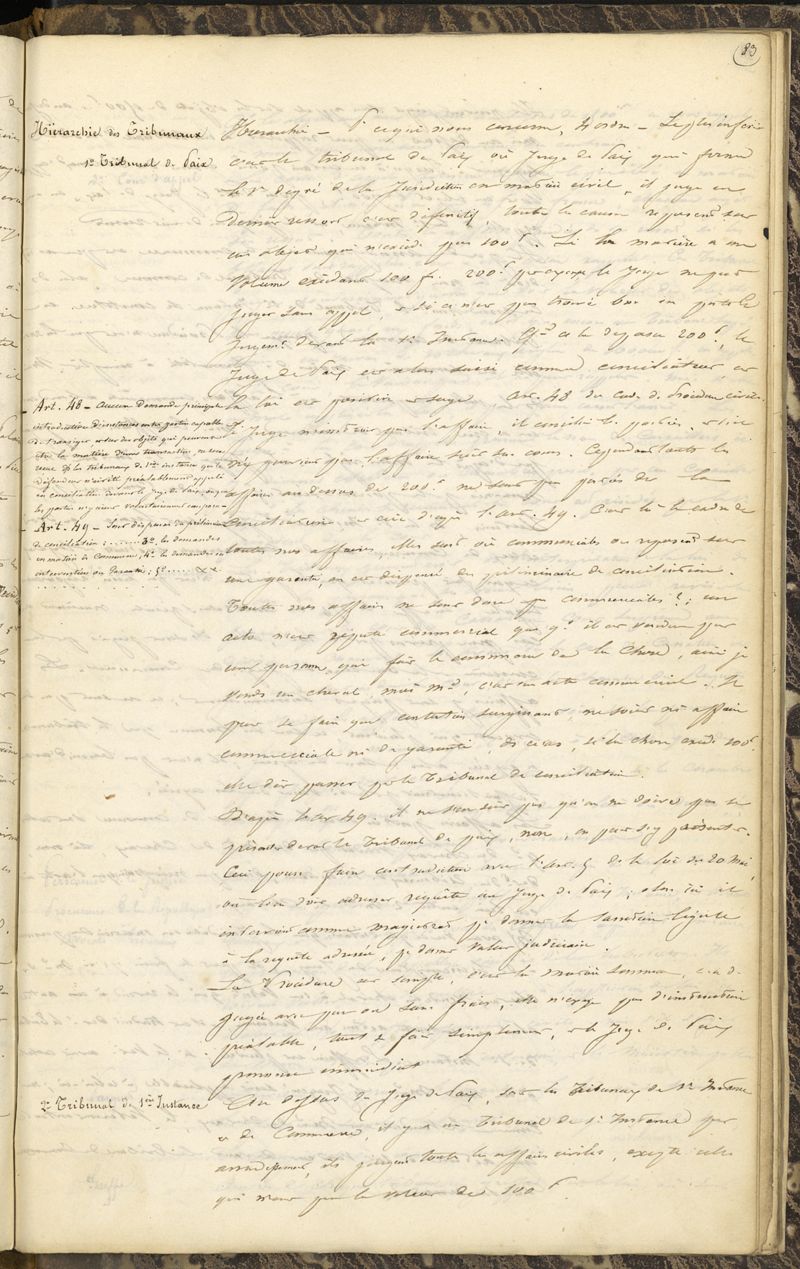 83
Hiérarchie des Tribunaux
1º Tribunal de Paix
Hierarchie — Pr ce qui nous concerne, 4 ordres — Le plus inférieur
c'est le tribunal de Paix ou Juge de Paix qui forme
le 1er degré de la Juridiction en matière civile, il juge en
Dernier ressort, c. à d. définitif, toutes les causes reposant sur
un objet qui n'excède pas 100 f. Si la matière a une
Volume excédant 100 fr. 200 f par exemple le Juge ne peut
juger sans appel, et si ce n'est pas trouvé bon on porte le
Jugemt devant la 1re Instance. Qd ce la dépasse 200 f, le
Juge de Paix est alors saisi comme conciliateur, et
la loi est positive et sage, Art. 48 du Code de Procédure civile
le Juge n'instruit pas l'affaire il concilie les parties, et si ne
pas l'affaire suit son cours. Cependant toutes les
affaires au dessus de 200 f ne sont pas portées de la
Conciliation, et cela d'après l'art. 49. C'est là le cadre de
toutes nos affaires, elles sont ou commerciales ou reposent sur
une garantie, on est dispensé du préliminaire de conciliation.
Toutes nos affaires ne sont donc pas commerciales ?; un
acte n'est réputé commercial que qd il est vendu par
une personne qui fait le commerce de la chose, ainsi je
vends un cheval, moi md, c'est un acte commercial. Il
peut se faire que contestation surgissant, ne soit ni affaire
commerciale ni de garantie, ds ce cas, si la chose excède 200 f
elle doit passer pr le Tribunal de conciliation.
D'après l'art 49. il ne s'en suit pas qu'on ne doive pas se
présenter devant le Tribunal de paix, non, on peut s'y présenter.
Ceci pour faire contradiction avec l'art. 5 de la loi du 20 Mai,
où l'on doit adresser requête au Juge de Paix; alors ici il
intervient comme magistrat pr donner la sanction légale
à la requête adressée, pr donner valeur judiciaire.
La Procédure est simple, c'est la matière sommaire, c. à d.
jugée avec peu ou sans frais, elle n'exige pas d'instruction
préalable, tout se fait simplement, et le Juge de Paix
prononce immédiat
Art. 48 — Aucune Demande principale
introductive d'instance entre parties capables
de transiger et sur des objets qui peuvent
être la matière d'une transaction, ne sera
reçue ds les tribunaux de 1re instance que le
défendeur n'ait été préalablement appelé
en conciliation devant le juge de Paix, ou que
les parties n'y aient volontairement comparu
Art. 49 — Sont dispensées du préliminaire
de conciliation : ....... 3º, les demandes
en matière de Commerce; 4º. les demandes en
intervention ou Garantie; 5º ..... xx.
2º Tribunal de 1ère Instance
Au dessus du Juge de Paix, sont les Tribunaux de 1re Instance
et de Commerce, il y a un Tribunal de 1re Instance par
arrondissement, ils jugent toutes les affaires civiles, excepté celles
qui n'ont pas la valeur de 100 f.